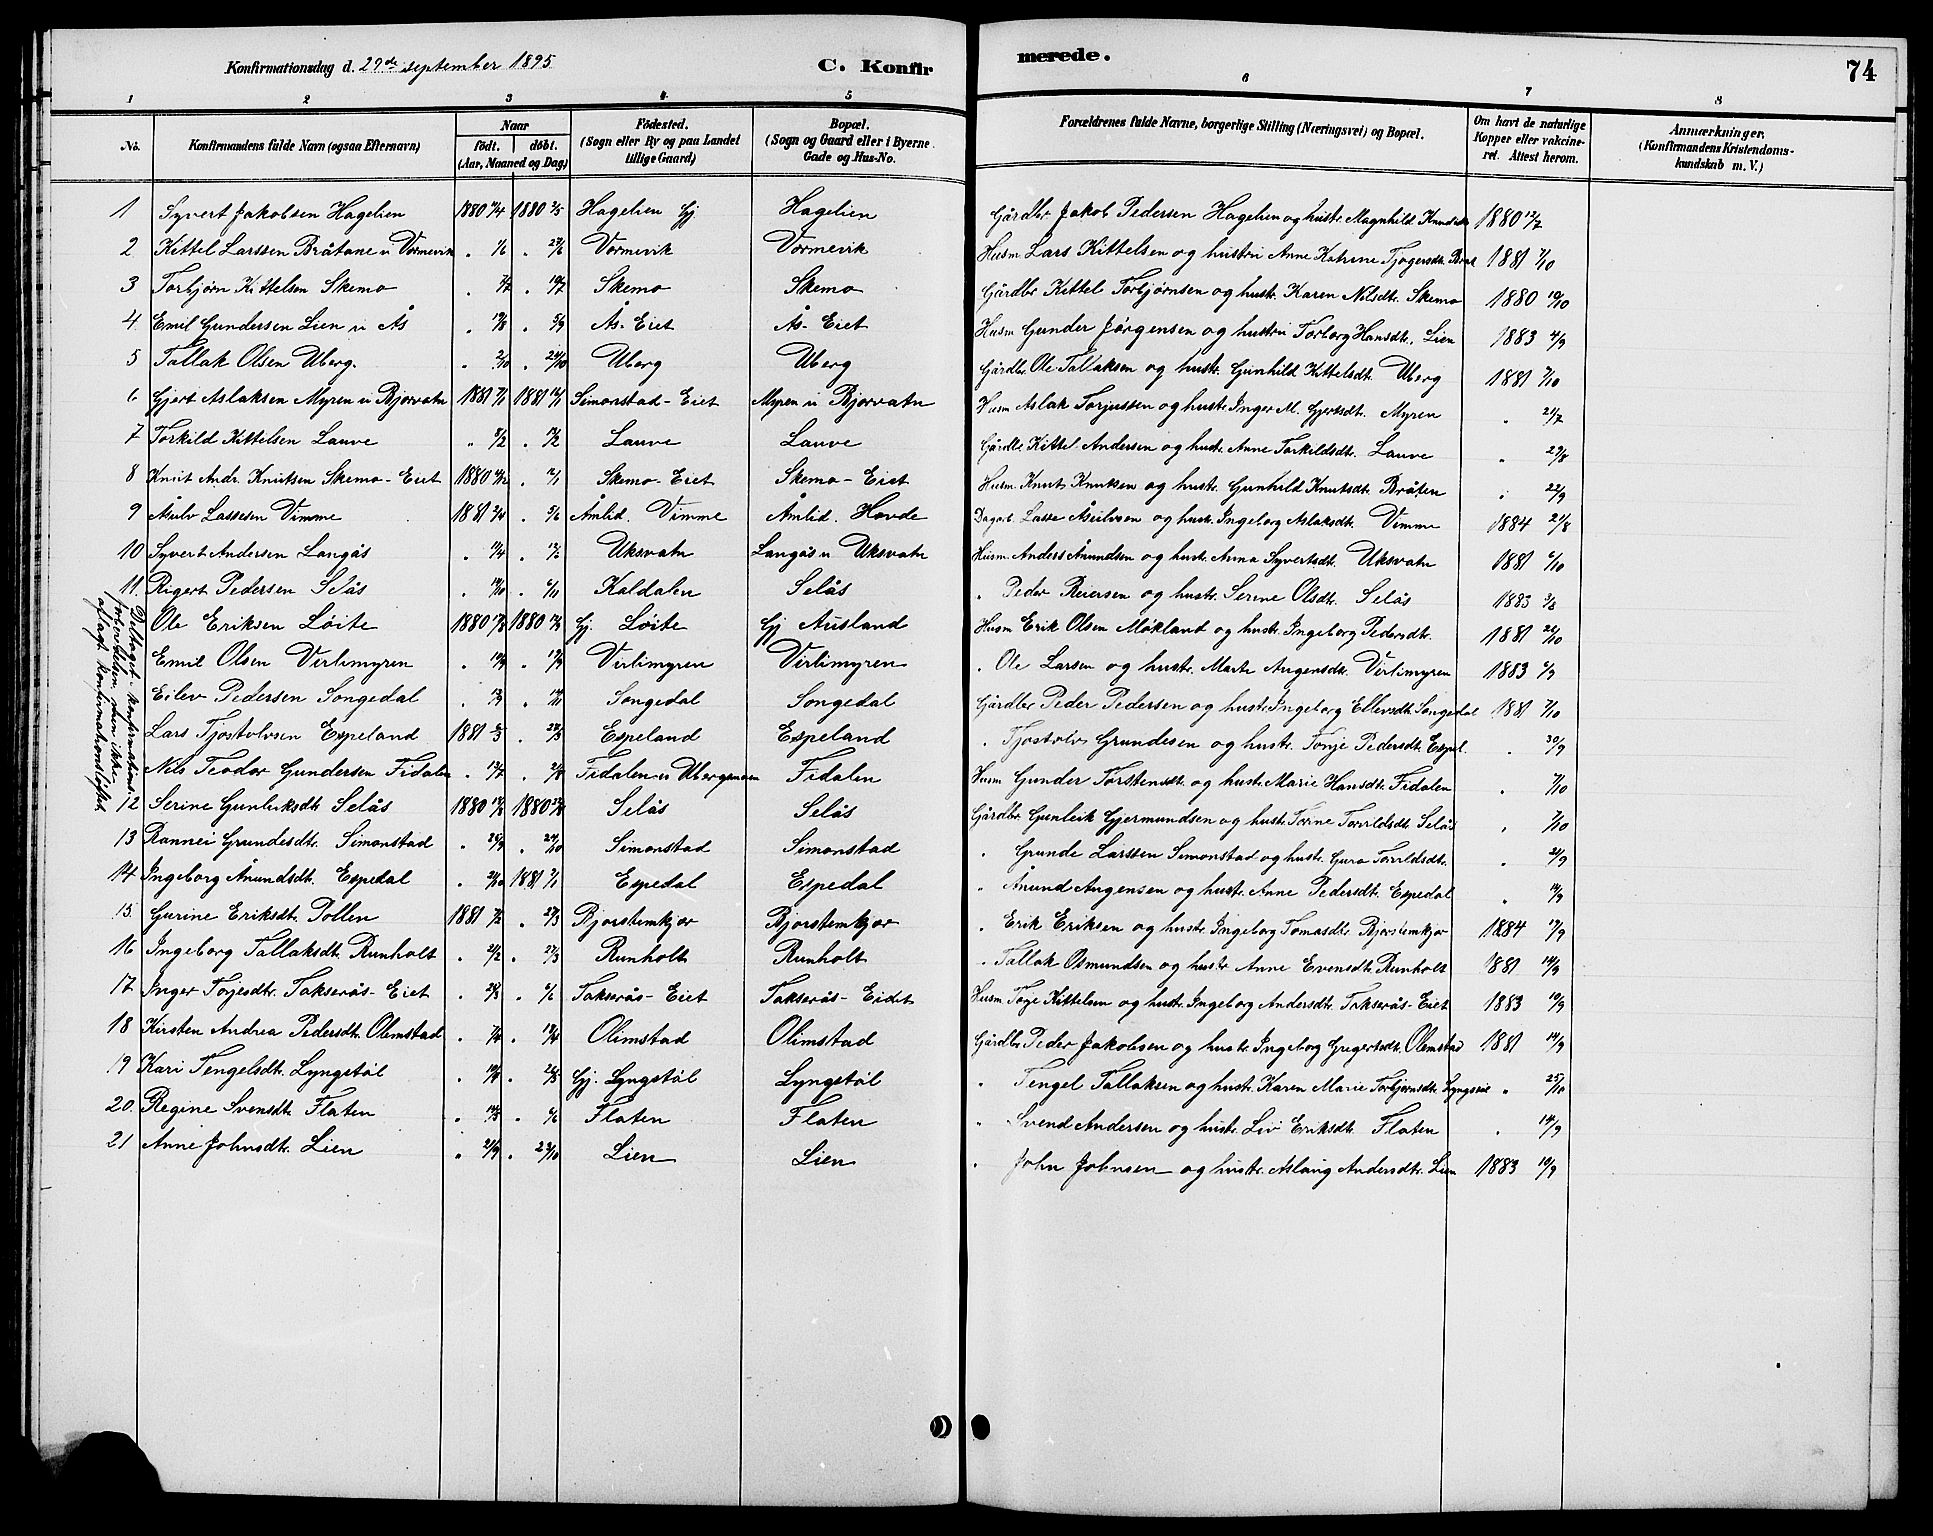 Konfirmationsdag d. 29de september 1895 C. Konfirmerede. 74
1 2 3 4 5 6 7 8
No. Konfirmandens fulde Navn (ogsaa Efternavn) Naar födt. döbt. (Aar, Maaned og Dag) Födested. (Sogn eller By og paa Landet tillige Gaard) Bopæl. (Sogn og Gaard eller i Byerne Gade og Hus-No. Forældrenes fulde Navne, borgerlige Stilling (Næringsvei) og Bopæl. Om havt de naturlige Kopper eller vakcineret. Attest herom. Anmærkninger. (Konfirmandens Kristendomskundskab m. V.)
1 Syvert Jakobsen Hagelien 1880 1880 2/5 Hagelien Gj. Hagelien Gårdbr Jakob Pedersen Hagelien og hustr. Magnhild 1880 12/7
2 Kittel Larssen Bråtane u Vormevik " 1/6 " 27/6 Vormevik Vormevik Husm Lars Kittelsen og hustru Anne Katrine 1881 7/10
3 Torbjørn Kittelsen Skemo " " Skemo Skemo Gårdbr Kittel Torbjørnsen og hustr. Karen Nilsdt. Skemo 1880 10/10
4 Emil Gundersen Lien u Ås " " 5/9 Ås-Eiet Ås-Eiet Husm Gunder Jørgensen og hustru Torborg Hansdt. Lien 1883
5 Tallak Olsen Uberg. " 2/10 " 24/10 Uberg Uberg Gårdbr Ole Tallaksen og hustr. Gunhild Kittelsdt. Uberg 1881 7/10
6 Gjert Aslaksen Myren u Bjorvatn 1881 1881 Simonstad-Eiet Myren u Bjorvatn Husm Aslak Torjussen og hustr. Inger M. Gjertsdt. Myren " 21/7
7 Torkild Kittelsen Lauve " " Lauve Lauve Gårdbr Kittel Andersen og hustr. Anne Torkildsdt. Lauve " 29/8
8 Knut Andr. Knutsen Skemo-Eiet 1880 " Skemo-Eiet Skemo-Eiet Husm. Knut Knutsen og hustr. Gunhild Knutsdt. Bråten " 22/9
9 Åsulv Lassesen Vimme 1881 " 5/6 Åmlid. Vimme Åmlid. Hovde Dagarb Lasse Åsulvsen og hustr. Ingeborg Aslaksdt. Vimme 1884 21/8
10 Syvert Andersen Langås " " Uksvatn Langås u Uksvatn Husm. Anders Ånundsen og hustr. Anna Syvertsdt. Uksvatn 1881 6/10
11. Rigert Pedersen Selås " " 6/11 Kaldalen Selås " Peder Reiersen og hustr. Serine Olsdt. Selås 1883
Ole Eriksen Løite 1880 1880 Gj. Løite Gj Ausland Husm Erik Olsen Mokland og hustr. Ingeborg Pedersdt. 1881 22/10
Emil Olsen Virlimyren " " Virlimyren Virlimyren " Ole Larsen og hustr. Marte Augensdt. Virlimyren 1883 6/9
Eilev Pedersen Songedal " " Songedal Songedal Gårdbr Peder Pedersen og hustr. Ingeborg Ellevsdt. Songedal 1881 7/10
Lars Tjøstolvsen Espeland 1881 " Espeland Espeland " Tjøstolv Grundesen og hustr. Tonje Pedersdt. Espel. " 30/9
Nils Teodor Gundersen Fidalen " " Fidalen u Ubergsmoen Fidalen Husm Gunder Torstensdt. og hustr. Marie Hansdt. Fidalen " 7/10
Deltaget i konfirmationsforberedelsen, men ikke aflagt konfirmationsløftet
12 Serine Gunleiksdt. Selås 1880 1880 Selås Selås Gårdbr Gunleik Gjermundsen og hustr. Torine Torildsdt. Selås " 7/10
13 Rannei Grundesdt. Simonstad " 25/9 " 24/10 Simonstad Simonstad " Grunde Larssen Simonstad og hustr. Guro Torildsdt. " 21/9
14 Ingeborg Ånundsdt. Espedal " " 1881 Espedal Espedal " Ånund Augensen og hustr. Anne Pedersdt. Espedal " 14/9
15. Gurine Eriksdt. Pollen 1881 " 27/3 Bjorstemkjør Bjorstemkjør " Erik Eriksen og hustr. Ingeborg Tomasdtr Bjorstemkjor 1884 19/9
16 Ingeborg Tallaksdt. Runholt " 21/2 " 27/3 Runholt Runholt " Tallak Osmundsen og hustr Anne Evensdt. Runholt 1881 14/9
17 Inger Torjesdtr. Takserås-Eiet " " 6/6 Takserås-Eiet Takserås-Eidet Husm. Torje Kittelsen og hustr. Ingeborg Andersdtr. Takserås-Eiet 1883 10/9
18 Kirsten Andrea Pedersdtr. Olimstad " " Olimstad Olimstad Gårdbr Peder Jakobsen og hustr. Ingeborg Gregertsdt. Olimstad 1881 14/9
19 Kari Tengelsdt. Lyngstøl " " 26/5 Gj. Lyngstøl Lyngstøl " Tengel Tallaksen og hustr. Karen Marie Torbjørnsdt. " 25/10
20. Regine Svensdt. Flaten " " 6/6 Flaten Flaten " Svend Andersen og hustr. Liv Eriksdt. Flaten " 14/9
21 Anne Johnsdt. Lien " 21/9 " 23/10 Lien Lien " John Johnsen og hustr. Aslaug Andersdtr. Lien 1883 10/9